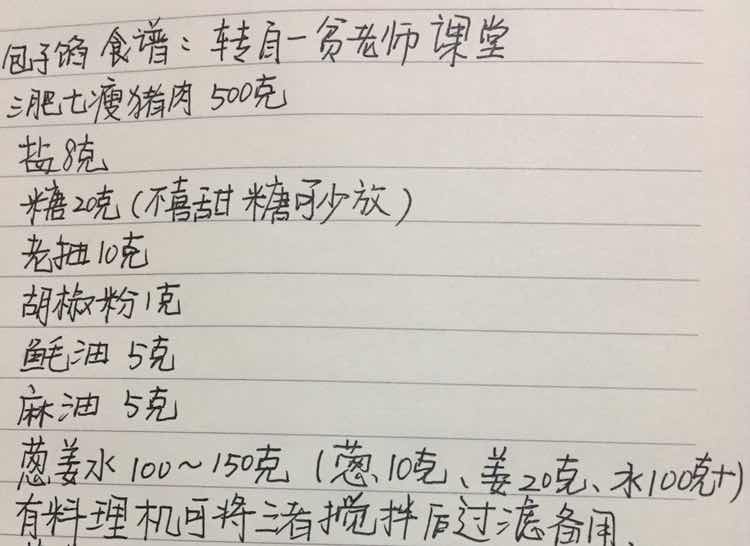 包子馅食谱：转自一贫老师课堂
三肥七瘦猪肉 500克
盐8克
糖20克（不喜甜糖可少放）
老抽10克
胡椒粉1克
蚝油 5克
麻油 5克
葱姜水 100～150克（葱10克、姜20克、水100克+）
有料理机可将三者搅拌后过滤备用.